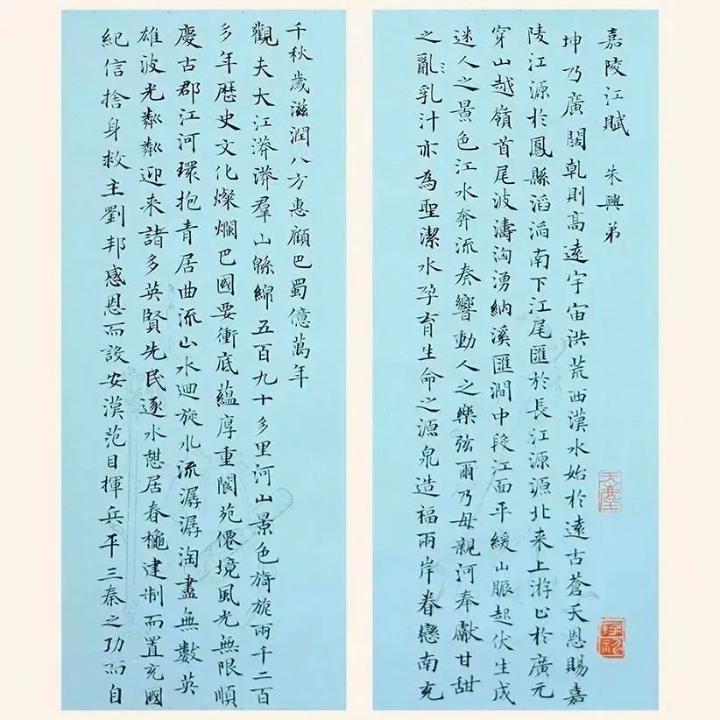 嘉陵江賦 朱興弟
坤乃廣闊乾則高遠宇宙洪荒西漢水始於遠古蒼天恩賜嘉
陵江源於鳳縣滔滔南下江尾匯於長江源源北来上游止於廣元
穿山越嶺首尾波濤洶湧納溪匯澗中段江面平緩山脈起伏生成
迷人之景色江水奔流奏響動人之樂弦爾乃母親河奉獻甘甜
之亂乳汁亦為聖潔水孕育生命之源泉造福兩岸眷戀南充
千秋歲滋潤八方惠顧巴蜀億萬年
觀夫大江漭漭羣山緜綿五百九十多里河山景色旖旎兩千二百
多年歷史文化燦爛巴國要衝底蘊厚重閬苑僊境風光無限順
慶古郡江河環抱青居曲流山水迴旋水流潺潺淘盡無數英
雄波光粼粼迎来諸多英賢先民逐水憩居春秋建制而置充國
紀信捨身救主劉邦感恩而設安漢范目揮兵平三秦之功而自